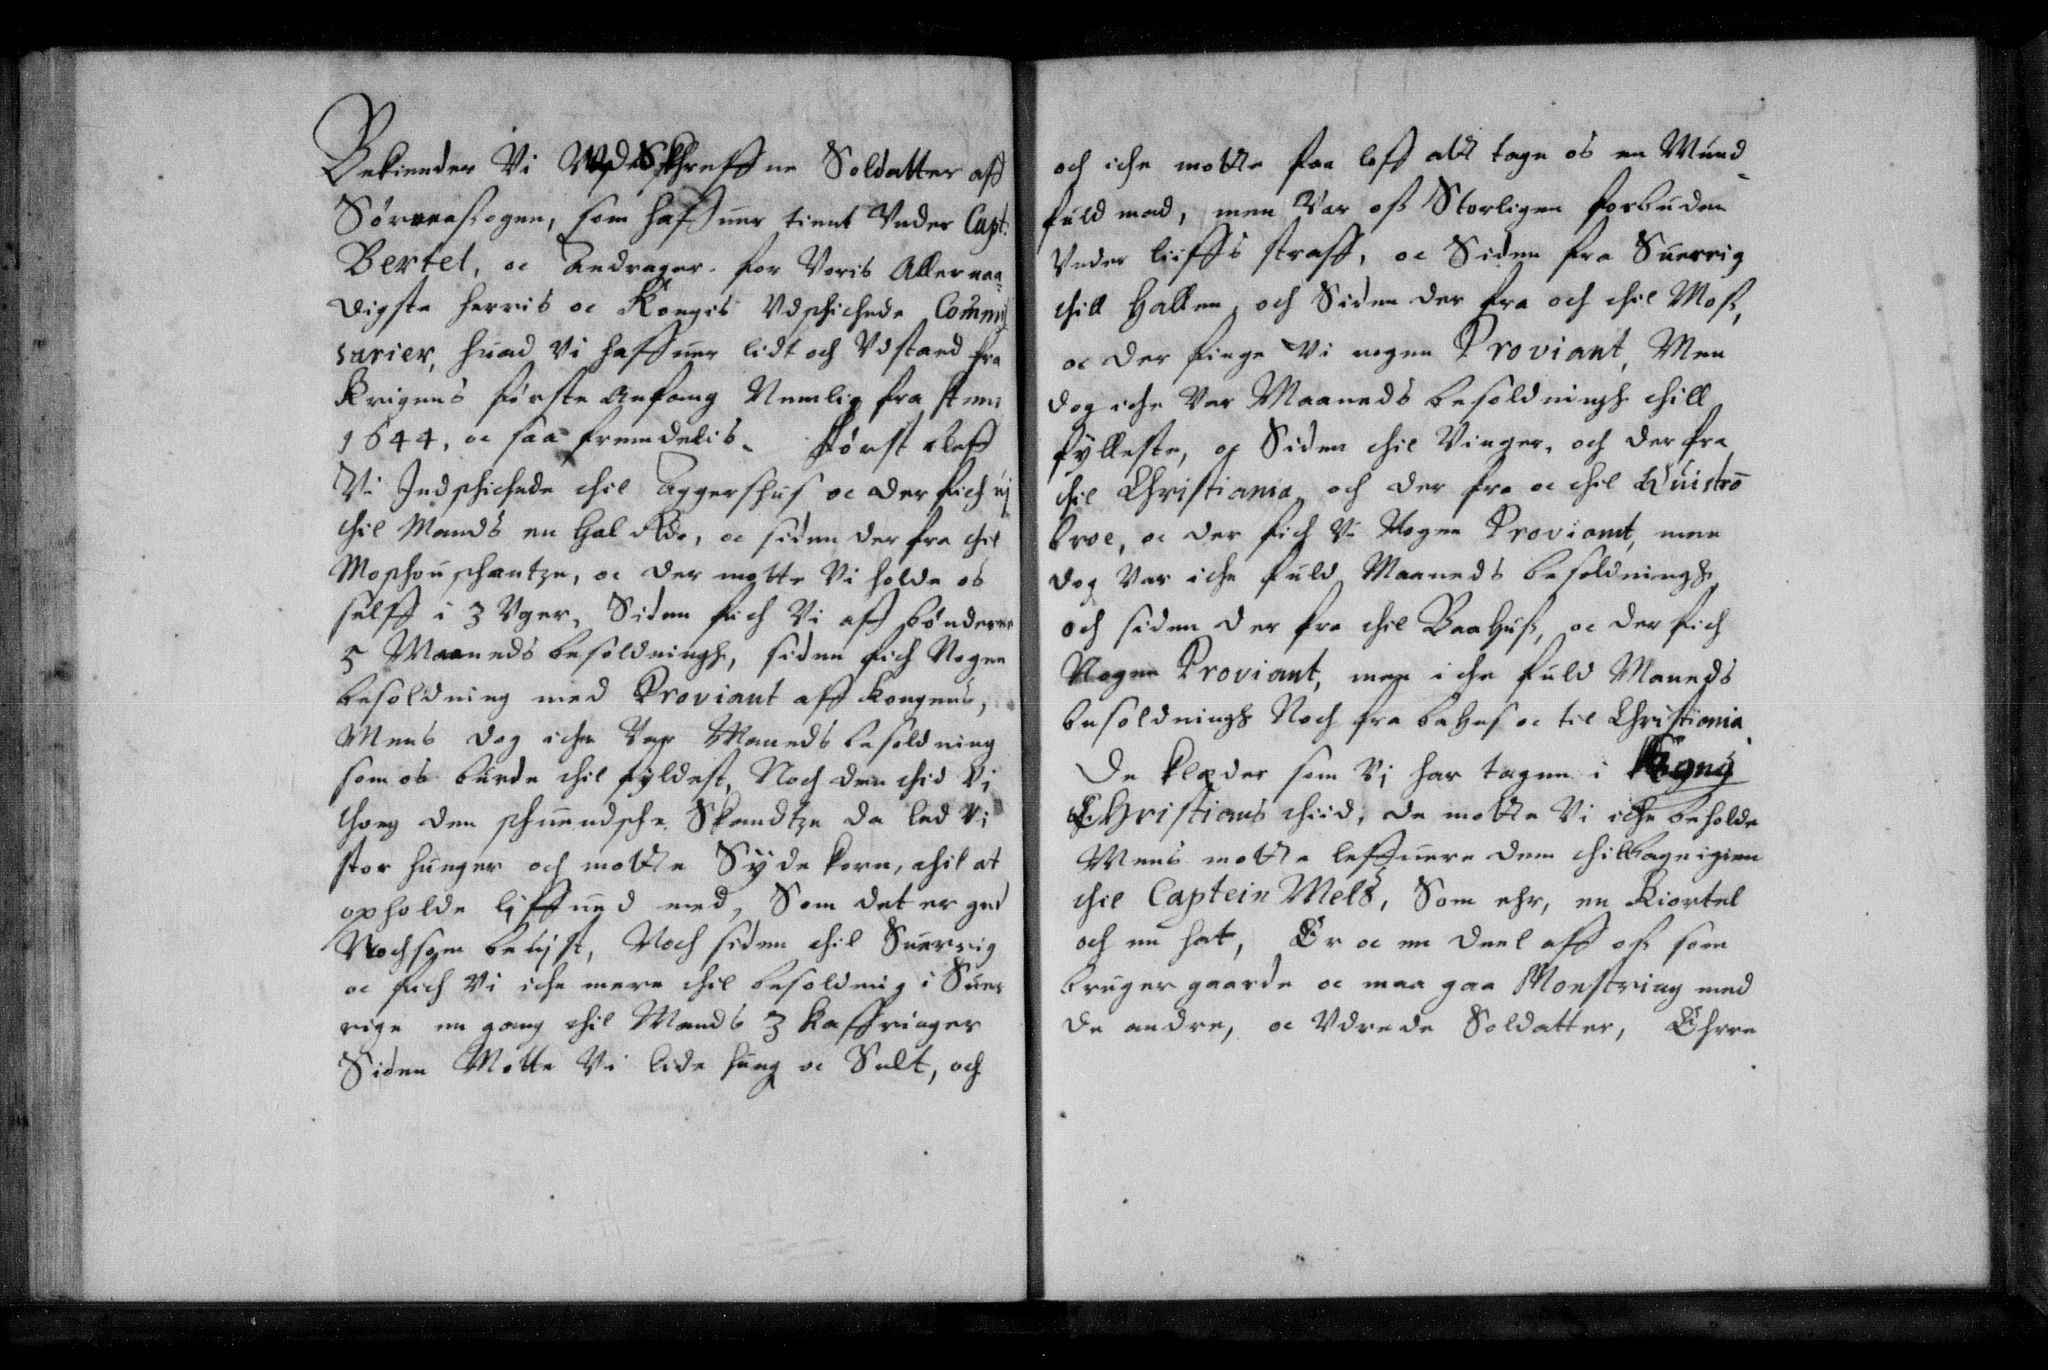 Bekiender Vi Vdskreffne Soldatter aff
Sørensogen, som haffuer tient Vnder Capt:
Bertel, oc Andrager for Voris Allernaa-
digste herris oc Kongis Vdschichede Commis
sarier, huad Vi haffuer lidt och Vdstaaed fra
Krigens første Anfang Nemlig fra
1644, oc saa fremdelis. Først bleff
Vi Indschichede thil Aggershus oc der fich vj
thil Mands en hal Rdr, oc siden der fra thil
Moschouschantze, oc der motte Vi holde os
selff i 3 Vger, Siden fich Vi aff bønderne
5 Maaneds besoldningh, siden fich Nogen
besoldning med Proviant aff Kongens,
Mens dog iche Var Maaneds besoldning
som os burde thil fyldest, Noch den thid Vi
thog den schuendsche Skandtze da led Vi
stor hunger och motte Syde korn, thil at
opholde liffued med, Som det er gud
Nochsom beuist, Noch siden thil Suerrig
oc fich Vi iche mere thil besoldnig i Suer
rige en gang thil Mands 3 kaffringer
Siden Motte Vi lide hung oc Sult, och
och iche motte faa loff att tage os en Mund-
fuld mad, men Var oss Storligen forbuden
Vnder liiffs straff, oc Siden fra Suerrig
thill Hallen, och Siden der fra och thil Moss,
oc der finge Vi nogen Proviant, Men
dog iche Var Maaneds besoldningh thill
fylleste, oc Siden thil Vinger, och der fra
thil Christiania, och der fra oc thil Quistrō
broe, oc der fich Vi Nogen Proviant, men
dog Var iche fuld Maaneds besoldningh,
och siden der fra thil Baahuss, oc der fich
Nogen Proviant, men iche fuld Maneds
besoldningh Noch fra bahus oc til Christiania
De klæder som Vj har tagen i Kong
Christians thiid, de motte Vi iche beholde
Mens motte leffuere dem thilbageigien
thil Captein Mels, Som ehr, en Kiortel
och en hat, Er oc en deel aff oss som
bruger gaarde oc maa gaa Monstring med
de andre, oc Vdrede Soldatter, Ehrre